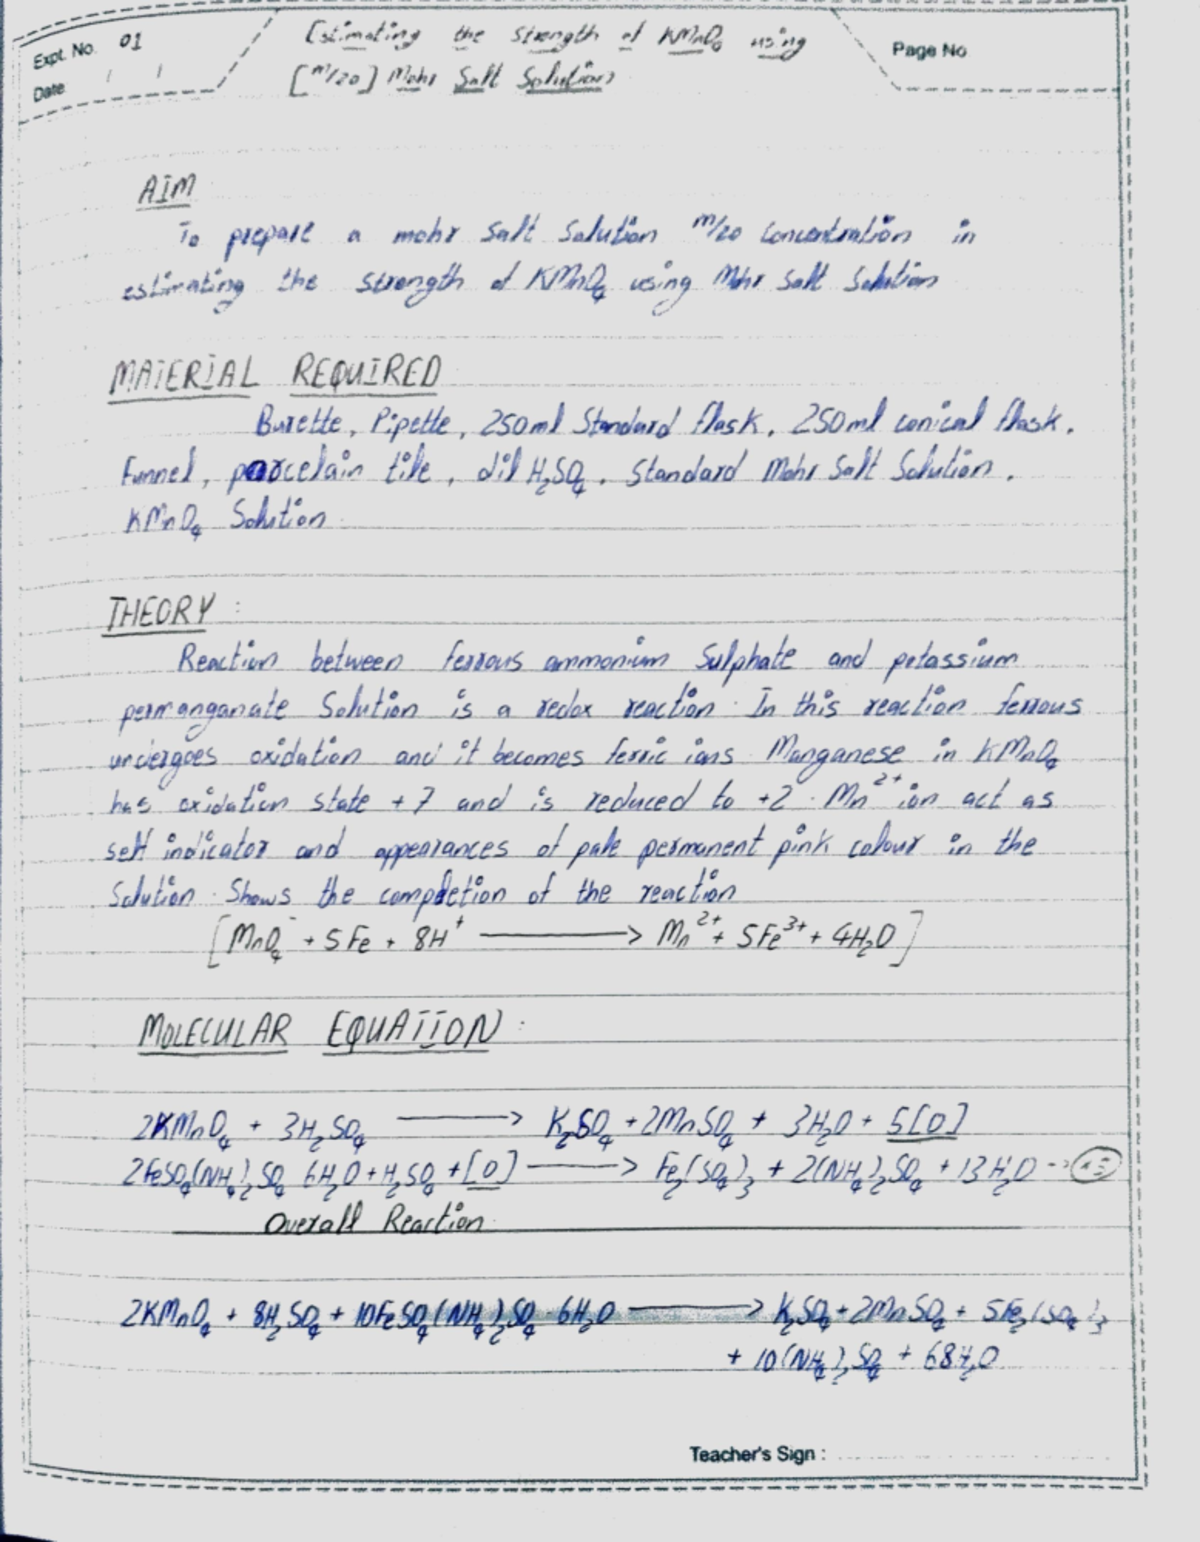 Expt. No. 01
Date / /
Estimating the Strength of KMnO₄ using
[m/20] Mohr Salt Solution
Page No
AIM
To prepare a mohr salt solution m/20 concentration in
estimating the strength of KMnO₄ using Mohr Salt Solution
MATERIAL REQUIRED
Burette, Pipette, 250ml Standard flask, 250ml conical flask,
Funnel, porcelain tile, dil H₂SO₄, Standard Mohr Salt Solution,
KMnO₄ Solution
THEORY :
Reaction between ferrous ammonium Sulphate and potassium
permanganate Solution is a redox reaction. In this reaction ferrous
undergoes oxidation and it becomes ferric ions. Manganese in KMnO₄
has oxidation state +7 and is reduced to +2. Mn²⁺ ion act as
self indicator and appearances of pale permanent pink colour in the
Solution. Shows the completion of the reaction
[MnO₄⁻ + 5Fe + 8H⁺ ⟶ Mn²⁺ + 5Fe³⁺ + 4H₂O]
MOLECULAR EQUATION :
2KMnO₄ + 3H₂SO₄ ⟶ K₂SO₄ + 2MnSO₄ + 3H₂O + 5[O]
2FeSO₄(NH₄)₂SO₄ 6H₂O + H₂SO₄ + [O] ⟶ Fe₂(SO₄)₃ + 2(NH₄)₂SO₄ + 13H₂O → ×5
Overall Reaction
2KMnO₄ + 8H₂SO₄ + 10FeSO₄(NH₄)₂SO₄ 6H₂O ⟶ K₂SO₄ + 2MnSO₄ + 5Fe₂(SO₄)₃
+ 10(NH₄)₂SO₄ + 68H₂O
Teacher's Sign :